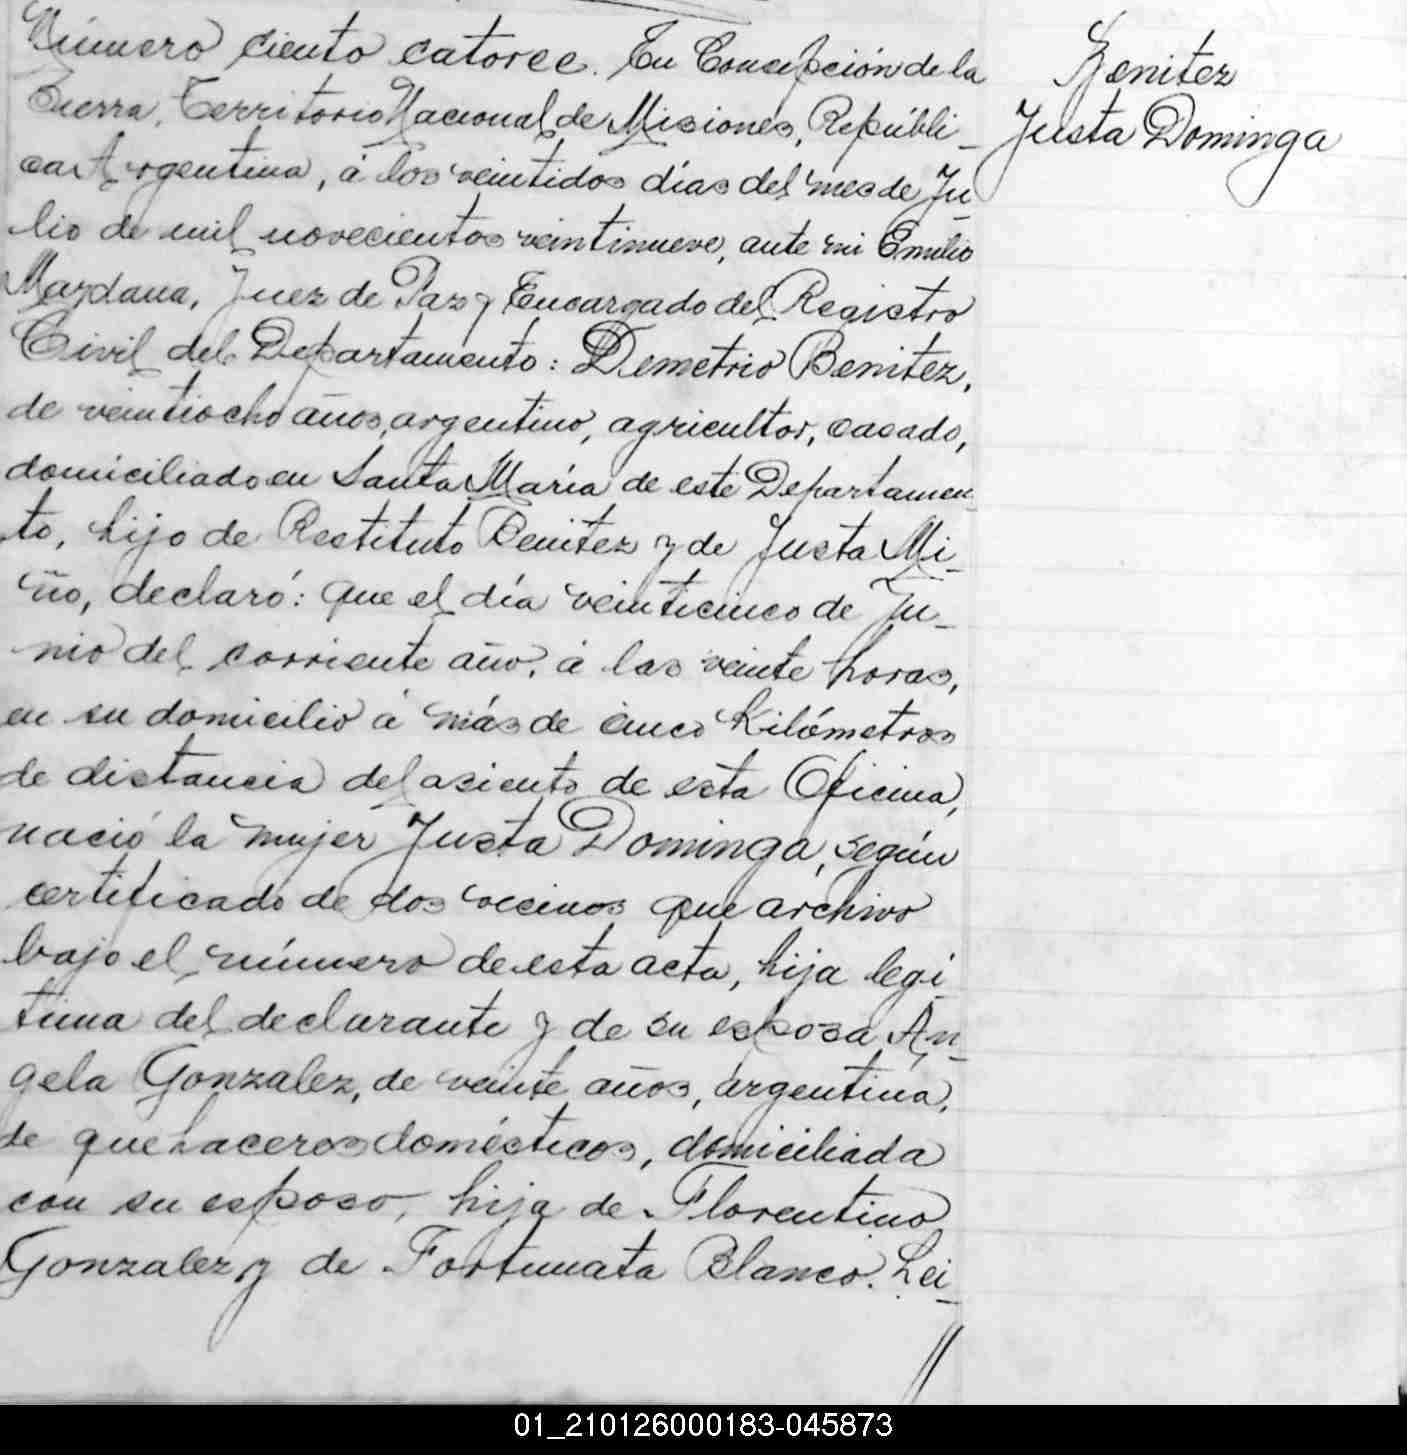 Número ciento catorce. En Concepción de la
Sierra, Territorio Nacional de Misiones, Repúbli-
ca Argentina, á los veintidos días del mes de Ju-
lio de mil novecientos veintinueve, ante mi Emilio
Maydana, Juez de Paz y Encargado del Registro
Civil del Departamento: Demetrio Benitez,
de veintiocho años, argentino, agricultor, casado,
domiciliado en Santa María de este Departamen-
to, hijo de Restituto Benitez y de Justa Mi-
ño, declaró: que el día veinticinco de Ju-
nio del corriente año, á las veinte horas,
en su domicilio á más de cinco Kilómetros
de distancia del asiento de esta Oficina,
nació la mujer Justa Dominga, según
certificado de dos vecinos que archivo
bajo el número de esta acta, hija legí-
tima del declarante y de su esposa An-
gela Gonzalez, de veinte años, argentina,
de quehaceres domésticos, domiciliada
con su esposo, hija de Florentino
Gonzalez y de Fortunata Blanco. Lei-
Benitez
Justa Dominga
01_210126000183-045873